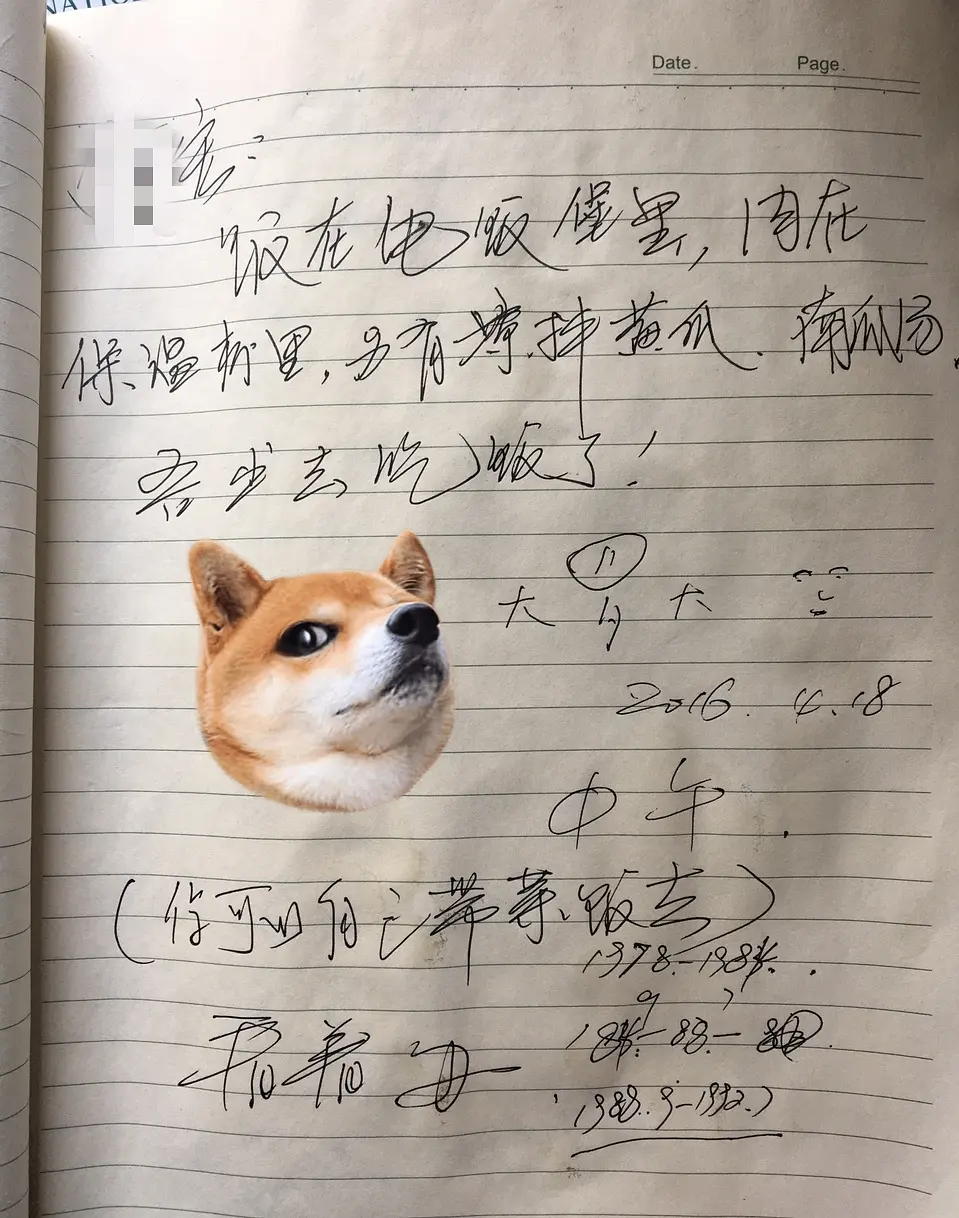 NATIO
Date. Page.
宝:
饭在电饭煲里,肉在
保温桥里,另有凉拌黄瓜、南瓜汤
吾出去吃饭了!
大
2016. 4.18
中午.
(你可以自己带菜、饭去)
1978.-198
88.-
1988.9-1992.7